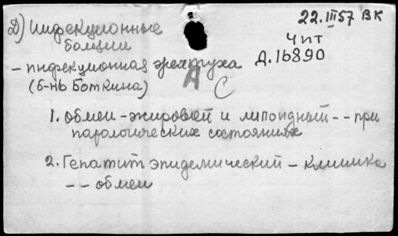 22.III57 ВК
Д) Инфекционные
болции
Ч пт
Д.16890
- инфекционная желтуха
(б-нь Боткина)
А
С
1. Обмен - жировой и липоидный - - при
патологических состояниях
2. Гепатит эпидемический - клиника
- - обмен